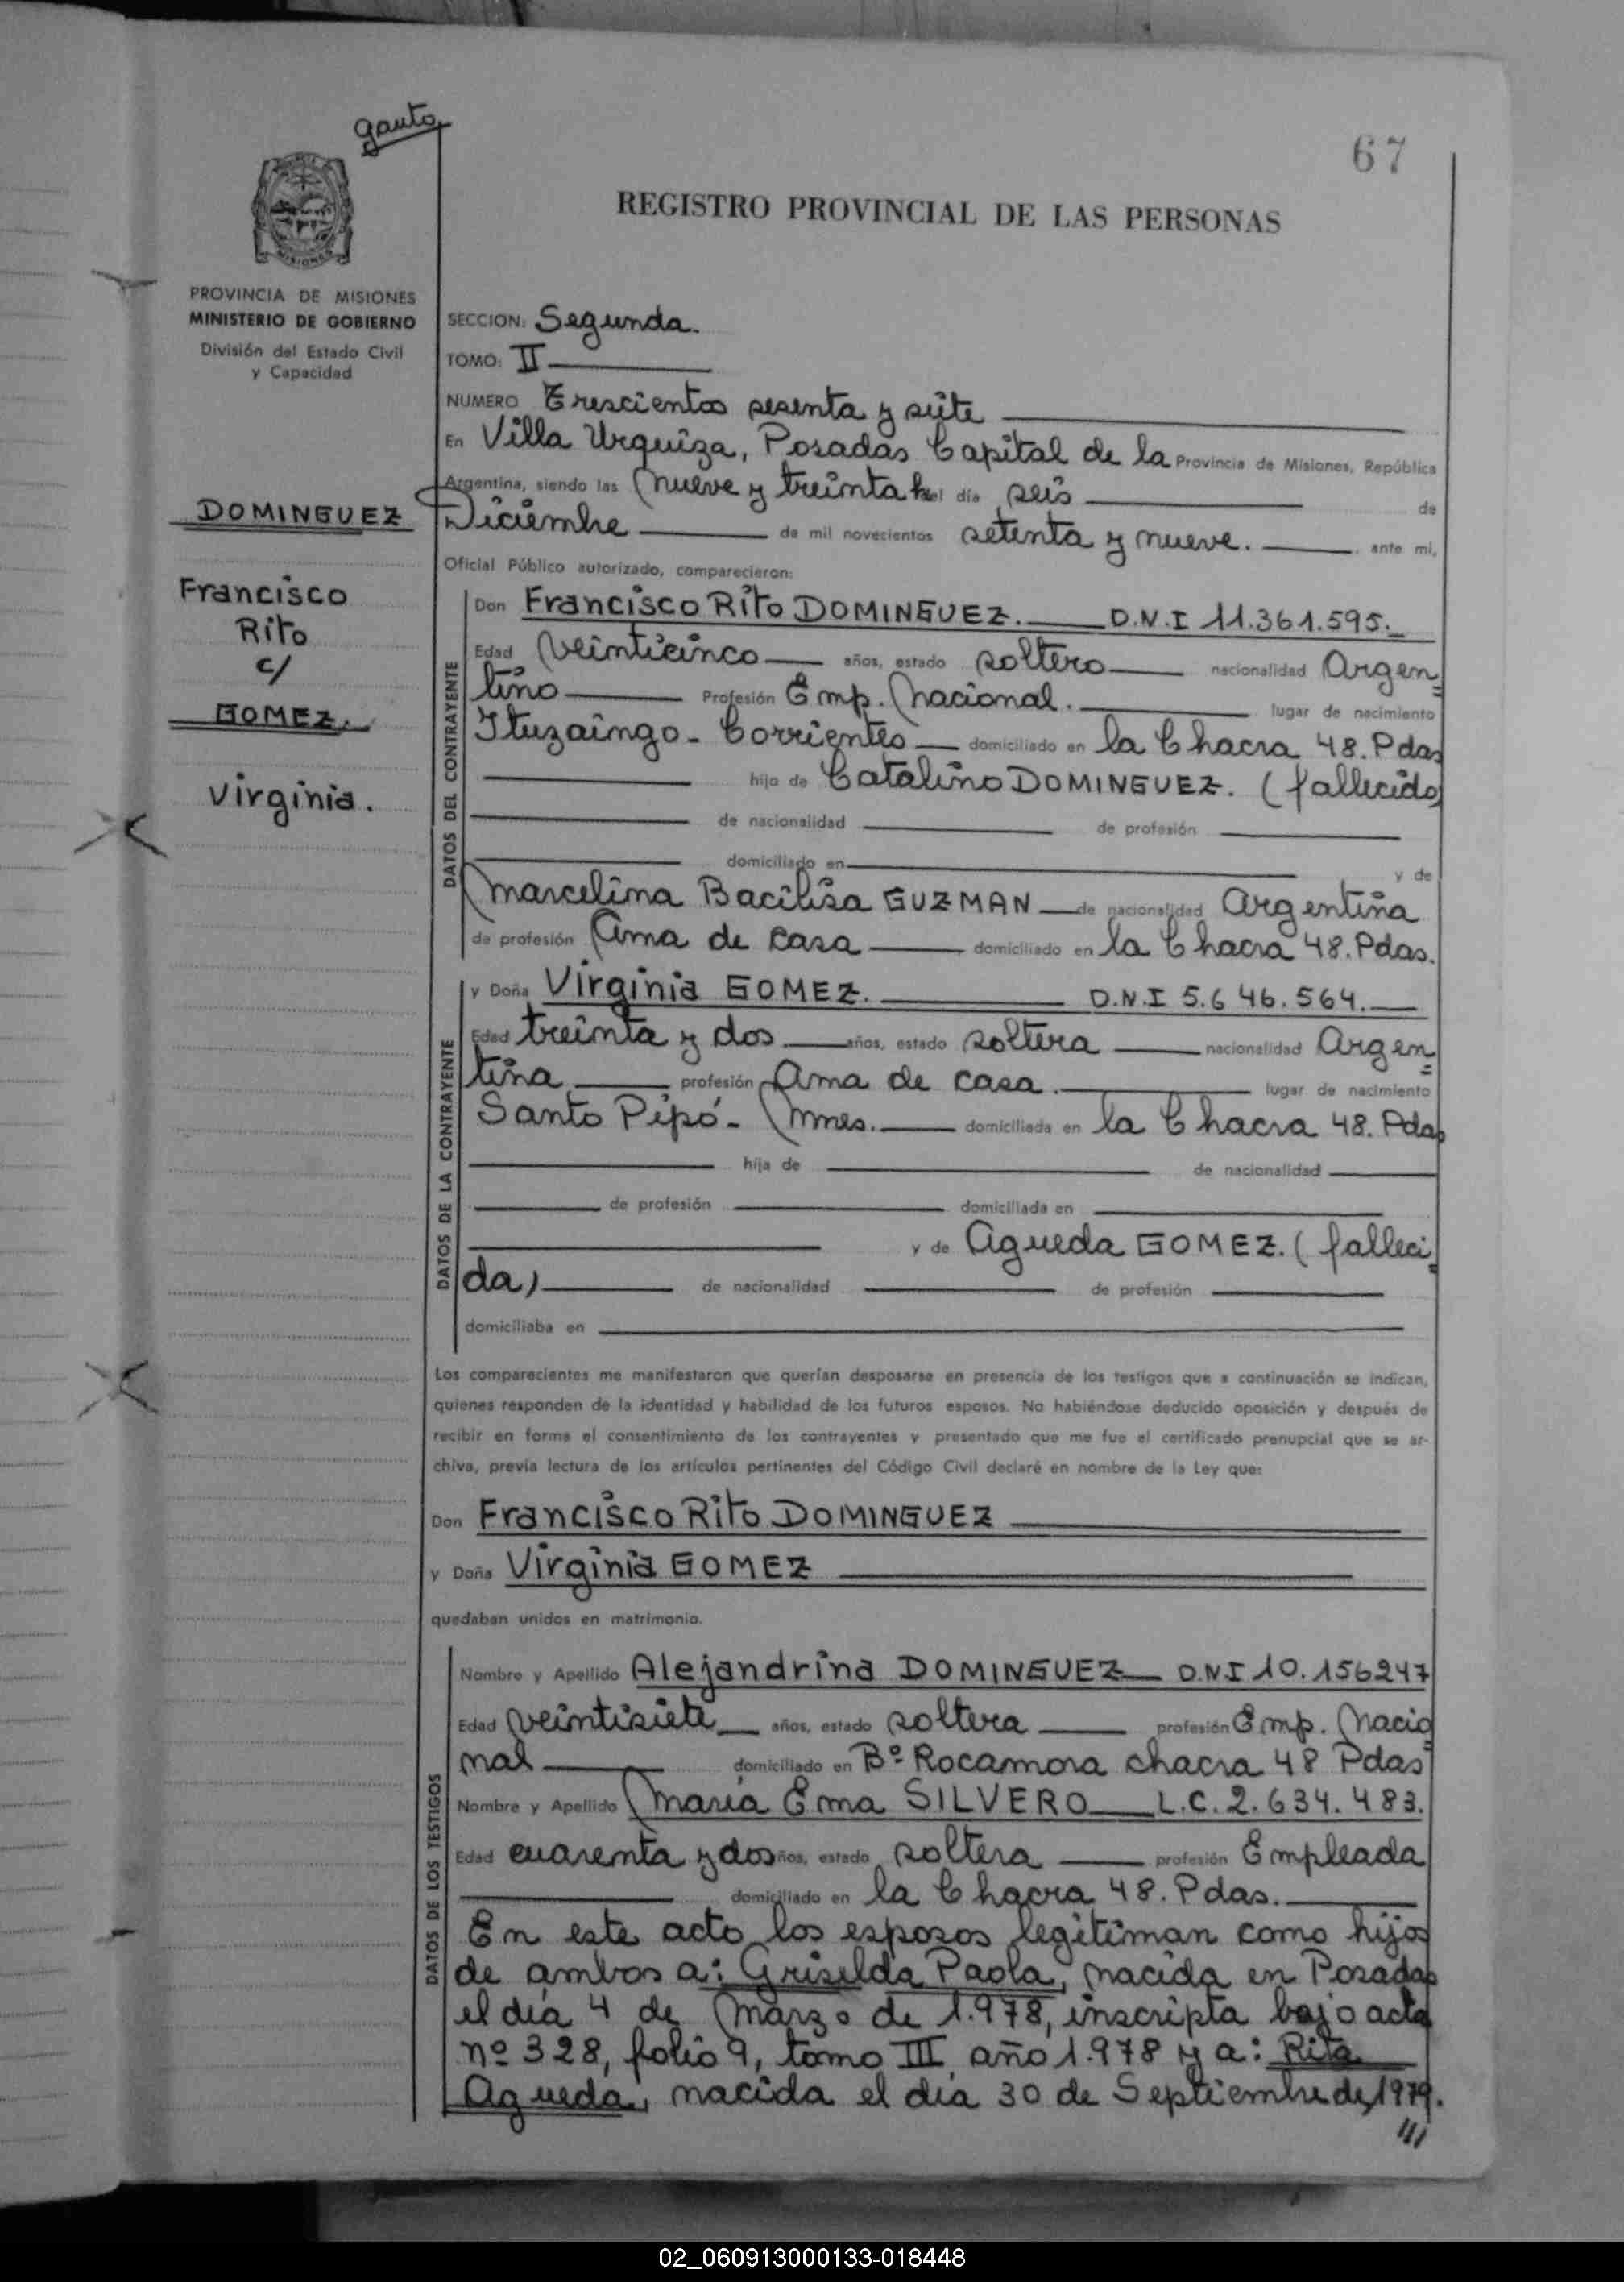 gauto
67
REGISTRO PROVINCIAL DE LAS PERSONAS
MISIONES
PROVINCIA DE MISIONES
MINISTERIO DE GOBIERNO
División del Estado Civil
y Capacidad
DOMINGUEZ
Francisco
Rito
c/
GOMEZ.
Virginia.
SECCION: Segunda.
TOMO: II
NUMERO Trescientos sesenta y siete
En Villa Urquiza, Posadas Capital de la Provincia de Misiones, República
Argentina, siendo las nueve y treinta h. del día seis de
Diciembre de mil novecientos setenta y nueve. ante mi,
Oficial Público autorizado, comparecieron:
DATOS DEL CONTRAYENTE
Don Francisco Rito DOMINGUEZ. D.N.I 11.361.595.
Edad veinticinco años, estado soltero nacionalidad Argen
tino Profesión Emp. Nacional. lugar de nacimiento
Ituzaingo - Corrientes domiciliado en la Chacra 48. Pdas
hijo de Catalino DOMINGUEZ. (fallecido)
de nacionalidad de profesión
domiciliado en y de
Marcelina Bacilisa GUZMAN de nacionalidad Argentina
de profesión Ama de casa domiciliado en la Chacra 48. Pdas.
DATOS DE LA CONTRAYENTE
y Doña Virginia GOMEZ. D.N.I 5.646.564.
Edad treinta y dos años, estado soltera nacionalidad Argen
tina profesión Ama de casa. lugar de nacimiento
Santo Pipó - Mnes. domiciliada en la Chacra 48. Pdas
hija de de nacionalidad
de profesión domiciliada en
y de Agueda GOMEZ. (falleci
da) de nacionalidad de profesión
domiciliaba en
Los comparecientes me manifestaron que querían desposarse en presencia de los testigos que a continuación se indican,
quienes responden de la identidad y habilidad de los futuros esposos. No habiéndose deducido oposición y después de
recibir en forma el consentimiento de los contrayentes y presentado que me fue el certificado prenupcial que se ar-
chiva, previa lectura de los artículos pertinentes del Código Civil declaré en nombre de la Ley que:
Don Francisco Rito DOMINGUEZ
y Doña Virginia GOMEZ
quedaban unidos en matrimonio.
DATOS DE LOS TESTIGOS
Nombre y Apellido Alejandrina DOMINGUEZ D.N.I 10.156247
Edad veintisiete años, estado soltera profesión Emp. Nacio
nal domiciliado en Bº Rocamora chacra 48 Pdas
Nombre y Apellido María Ema SILVERO L.C. 2.634.483.
Edad cuarenta y dos años, estado soltera profesión Empleada
domiciliado en la Chacra 48. Pdas.
En este acto los esposos legitiman como hijos
de ambos a: Griselda Paola, nacida en Posadas
el día 4 de Marzo de 1.978, inscripta bajo acta
nº 328, folio 9, tomo III año 1.978 y a: Rita
Agueda, nacida el día 30 de Septiembre de 1979.
///
02_060913000133-018448